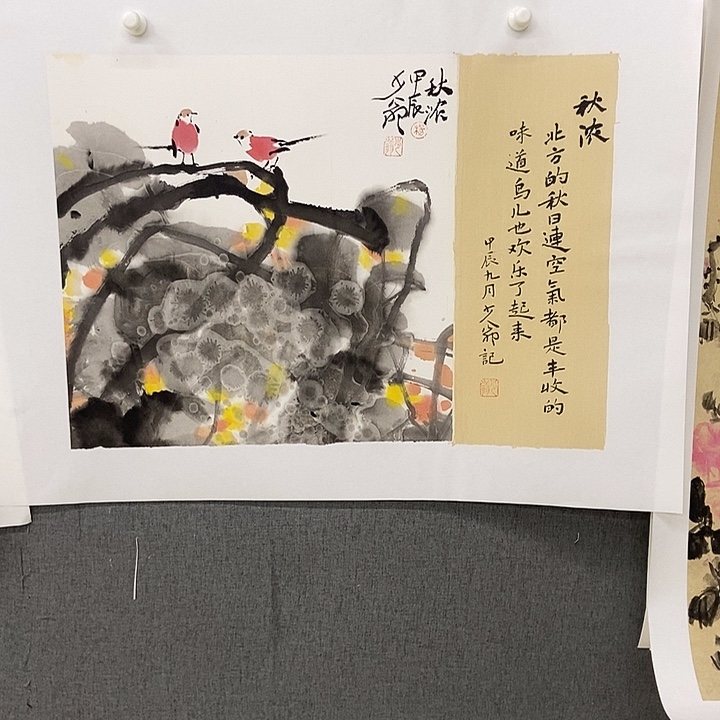 秋浓
甲辰
少翁
秋浓
北方的秋日連空氣都是丰收的
味道鸟儿也欢乐了起来
甲辰九月少翁記